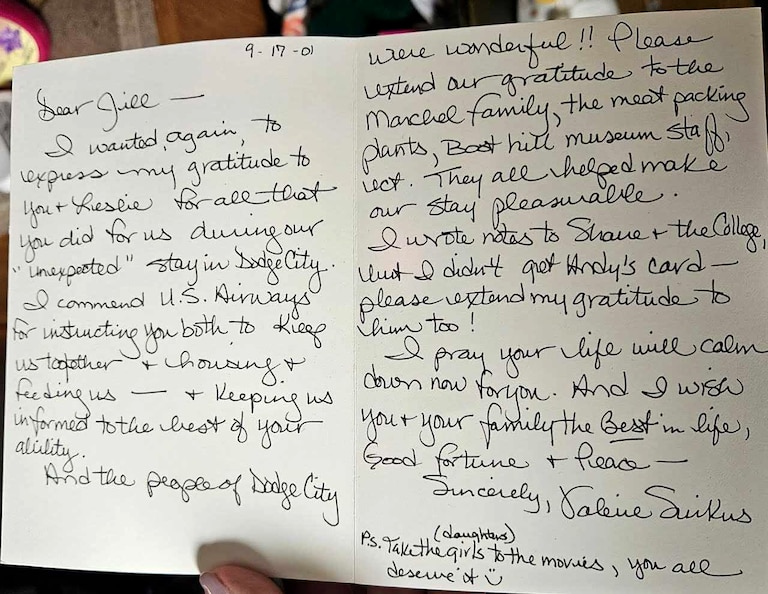 9-17-01
Dear Jill —
I wanted, again, to
express my gratitude to
you + Leslie for all that
you did for us during our
"unexpected" stay in Dodge City.
I commend U.S. Airways
for instructing you both to keep
us together + housing +
feeding us — + keeping us
informed to the best of your
ability.
And the people of Dodge City
were wonderful!! Please
extend our gratitude to the
family, the meat packing
plants, Boot hill museum staff,
ect. They all helped make
our stay pleasurable.
I wrote notes to Shane + the College,
but I didn't get Andy's card —
please extend my gratitude to
him too!
I pray your life will calm
down now for you. And I wish
you + your family the Best in life,
Good fortune + Peace —
Sincerely, Valerie
(daughters)
P.S. Take the girls to the movies, you all
deserve it